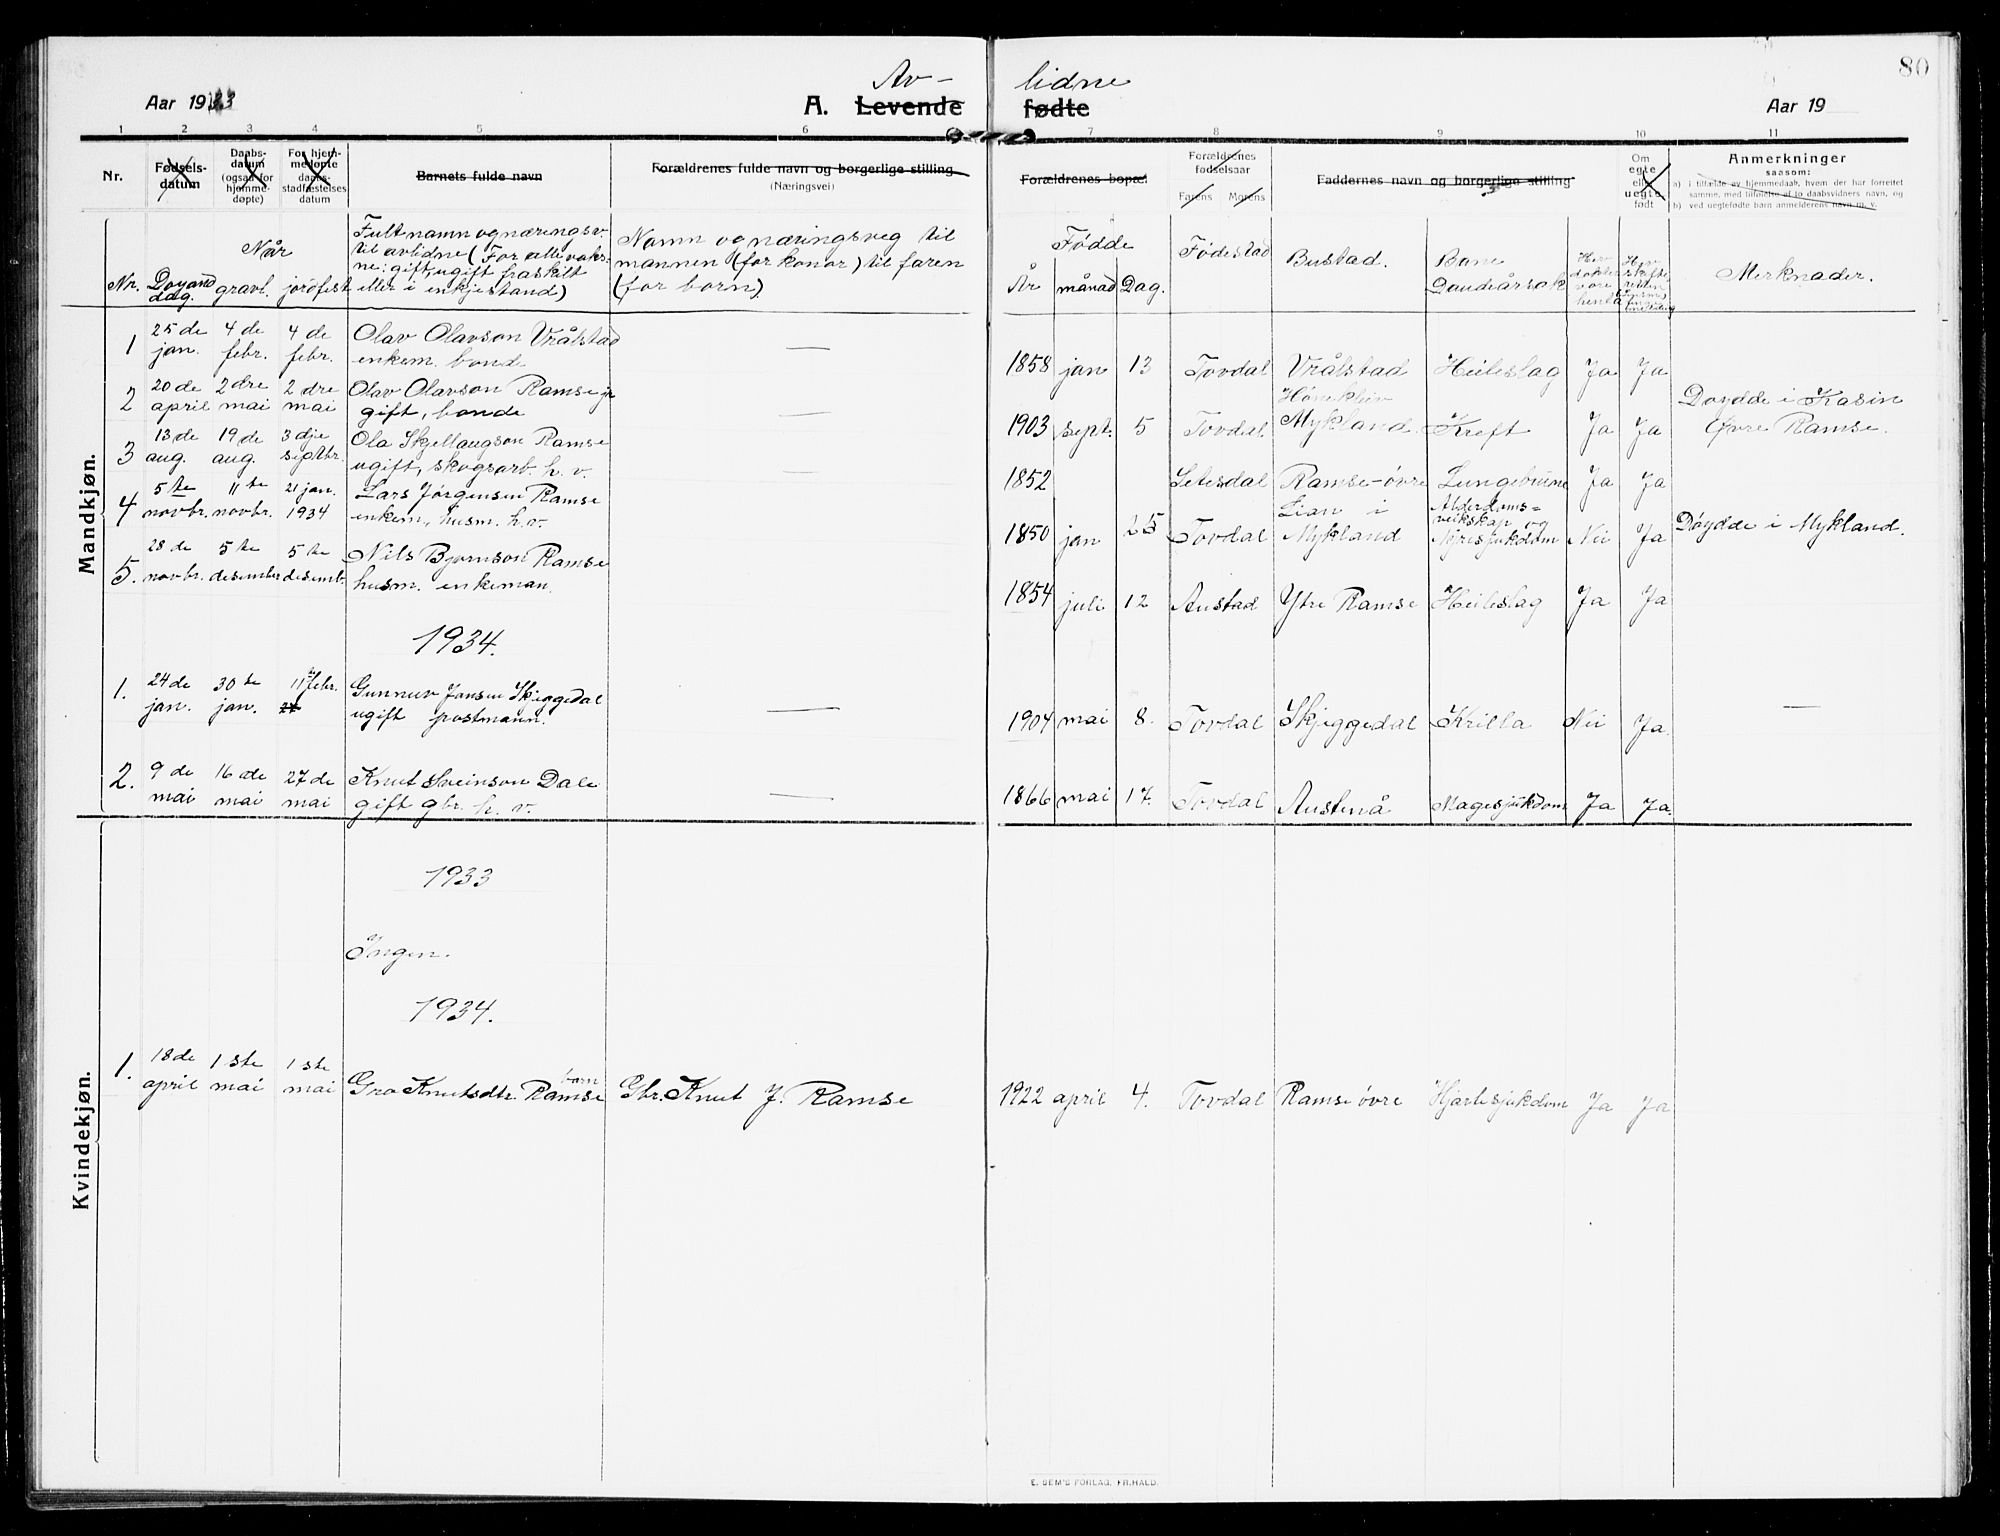 80
Av- lidne
Aar 1933 A. Levende fødte Aar 19
1 2 3 4 5 6 7 8 9 10 11
Nr.
Fødsels-
datum
Daabs-
datum
(ogsaa for
hjemme-
døpte)
For hjem-
medøpte
daabs-
stadfæstelses
datum
Barnets fulde navn
Forældrenes fulde navn og borgerlige stilling
(Næringsvei)
Forældrenes bopæl
Forældrenes
fødselsaar
Farens Morens
Faddernes navn og borgerlige stilling
Om
egte
eller
uegte
født
Anmerkninger
saasom:
a) i tilfælde av hjemmedaab, hvem der har forrettet
samme, med tilføielse af to daabsvidners navn, og
b) ved uegtefødte barn anmelderens navn m. v.
Nr.
Når
Doyand
dag.
gravl.
jordfest
Fult namn og næringsv.
til avlidne (For alle vaks-
ne: gift, ugift fraskilt
eller i enkjestand)
Namn og næringsveg til
mannen (for konor) til faren
(for born).
Fødde
År månad Dag.
Fødestad
Bustad.
Bane
Daudeårsak
Merknader.
Mandkjøn.
1 25 de jan. 4 de febr. 4 de febr. Olav Olavson Vrålstad enkem. bonde — 1858 jan 13 Tovdal Vrålstad Heileslag Ja Ja
2 20 de april 2 dre mai 2 dre mai Olav Olavson Ramse jr gift, bonde — 1903 sept. 5 Tovdal. Hønekleiv Mykland. Kreft Ja Ja Doydde i Kasin Øvre Ramse.
3 13 de aug. 19 de aug. 3 dje septbr. Ola Skjellaugson Ramse ugift, skogsarb. h. v. — 1852 Setesdal Ramse-øvre Lungebetenne Ja Ja
4 5 te novbr. 11 te novbr. 21 jan. 1934 Lars Jørgensen Ramse enkem., husm. h. v. 1850 jan 25 Tovdal Lian i Mykland Alderdoms- veikskap og Nyresjukdom Nei Ja Døydde i Mykland.
5. 28 de novbr. 5 te desember 5 te desemb. Nils Bjørnson Ramse husm. enkeman. 1854 juli 12 Austad Ytre Ramse Heileslag Ja Ja
1934.
1. 24 de jan. 30 te jan. 11 te febr. Gunnuv Jansen Skjeggedal ugift postmann. — 1904 mai 8. Tovdal Skjeggedal Krilla Nei Ja. —
2. 9 de mai 16 de mai 27 de mai Knut Sveinson Dale gift gbr. h. v. — 1866 mai 17. Tovdal Austenå Magesjukdom Ja Ja.
Kvindekjøn.
1933
Ingen.
1934.
1. 18 de april 1 ste mai 1 ste mai Gro Knutsdtr. Ramse barn Gbr. Knut J. Ramse 1922 april 4. Tovdal Ramse øvre Hjartesjukdom Ja Ja
E. SEM'S FORLAG, FR.HALD.